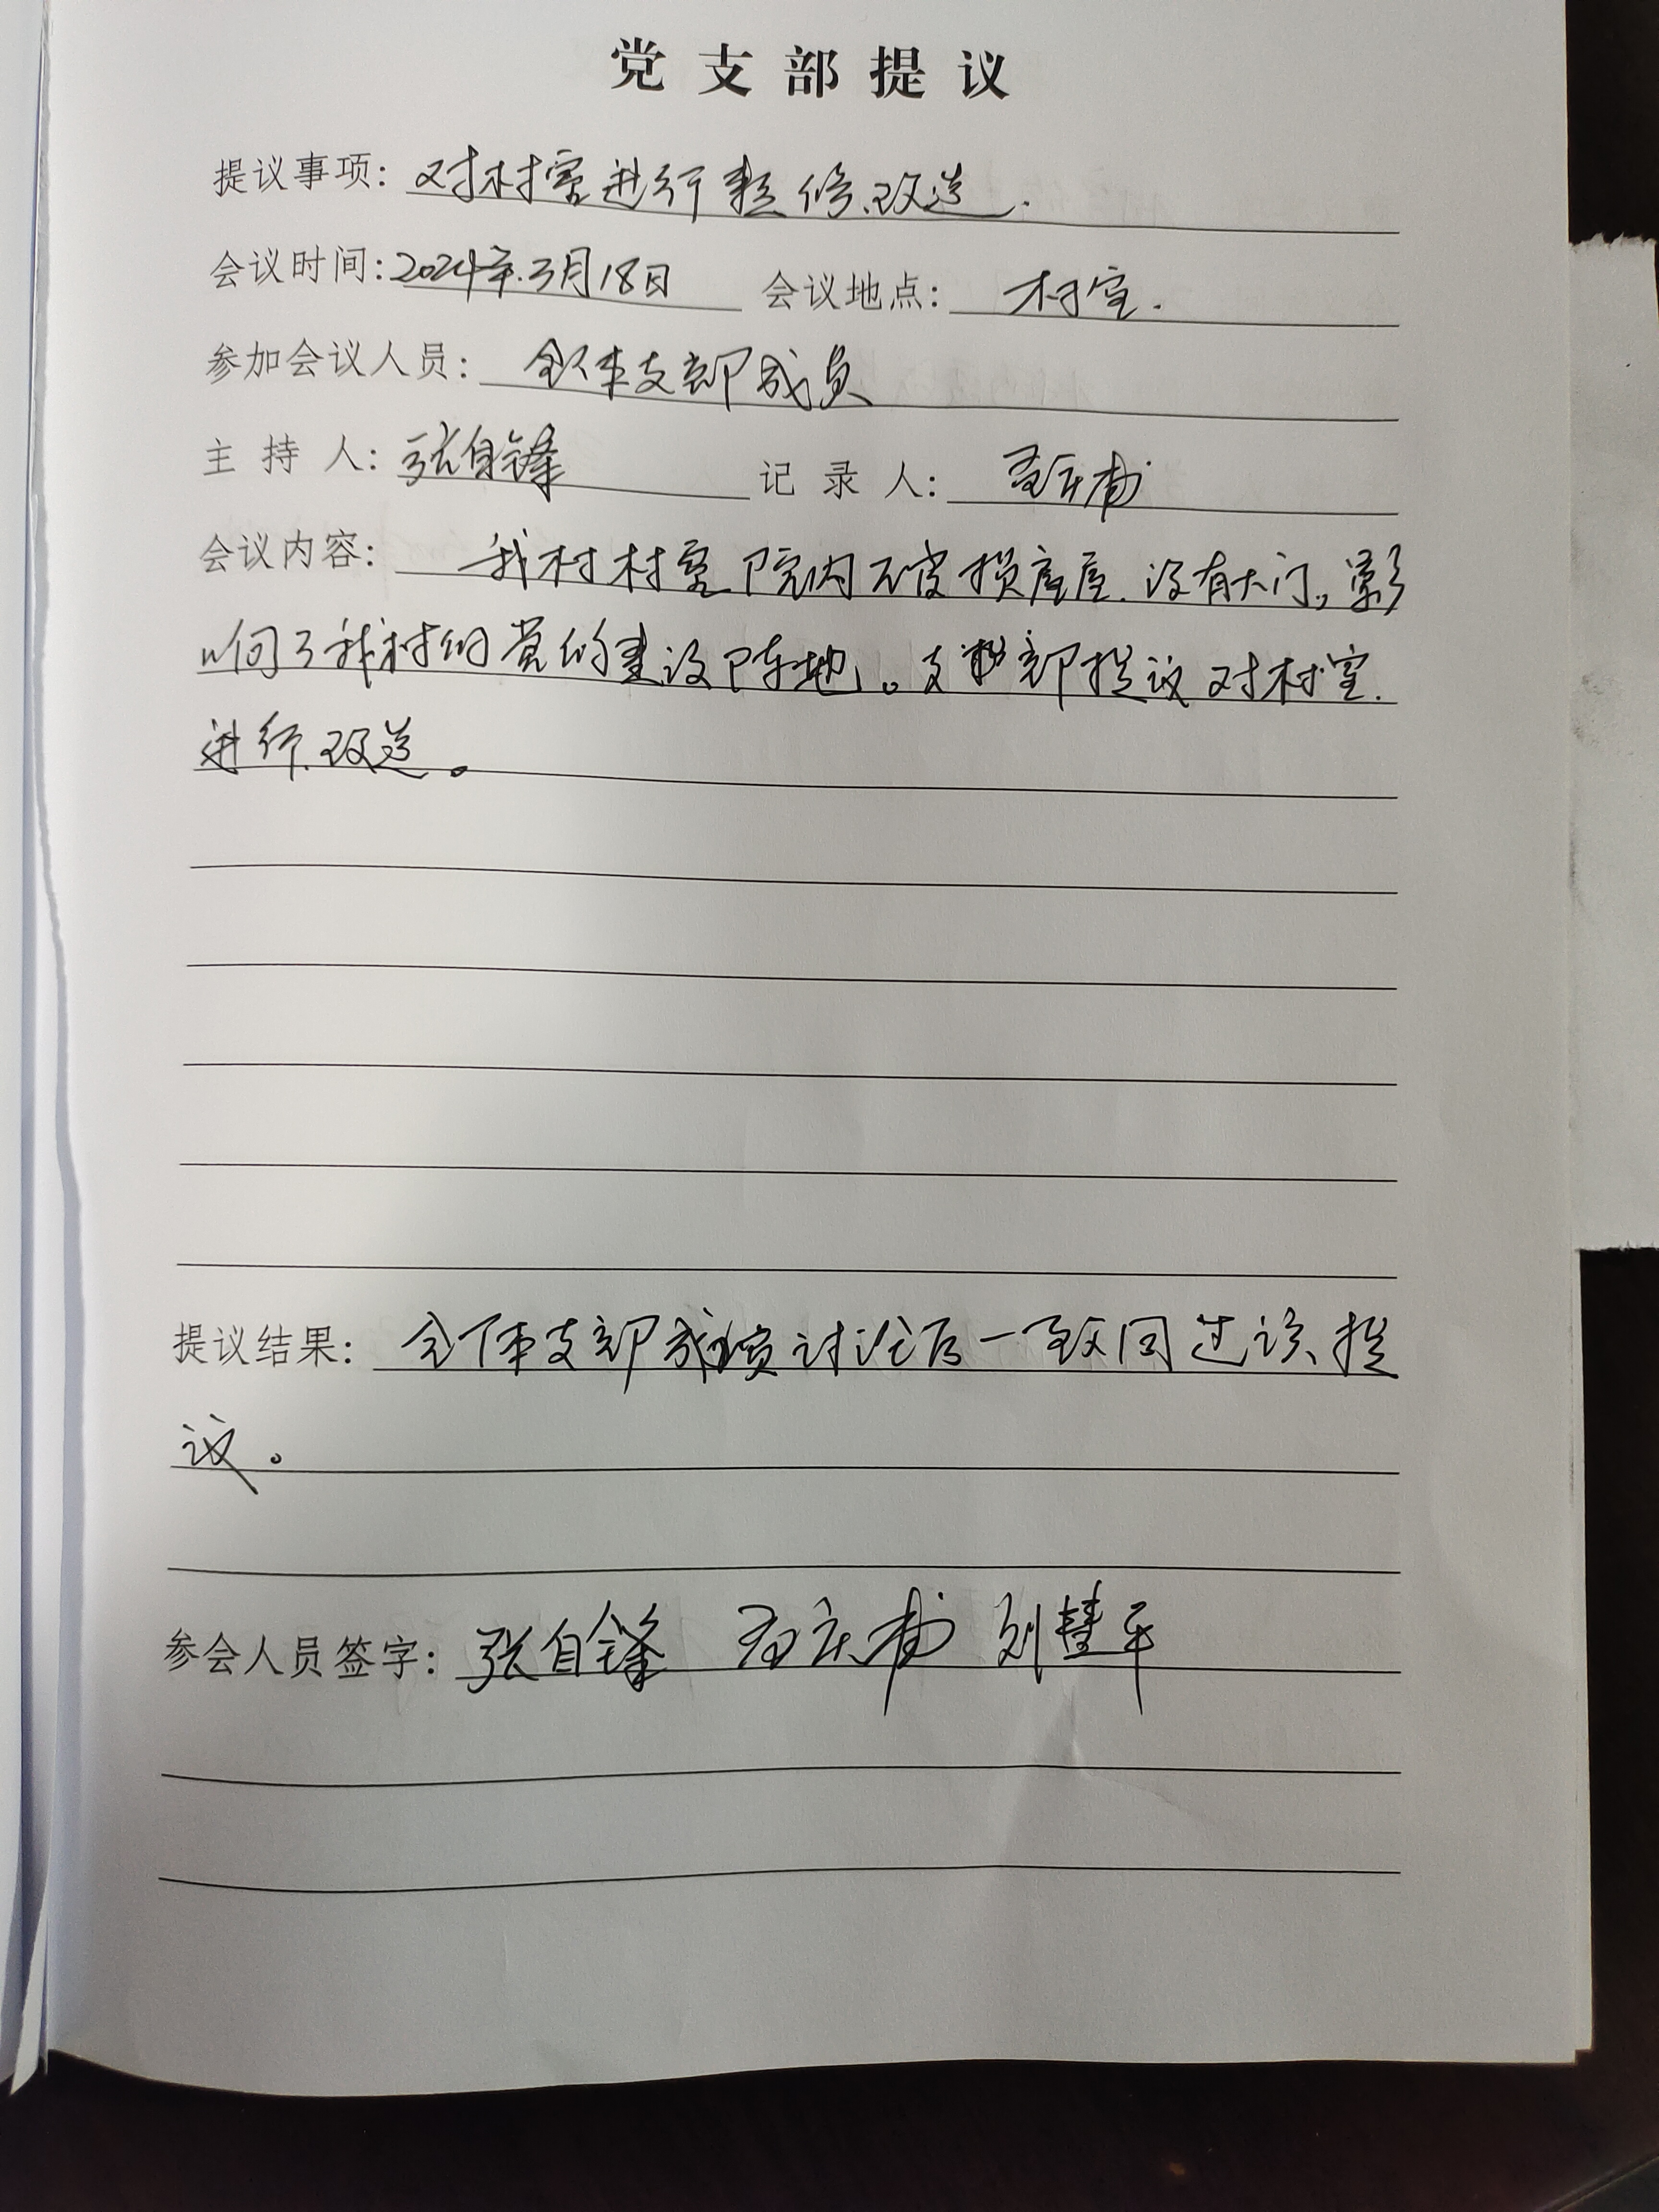 党支部提议
提议事项: 对村室进行整修改造.
会议时间: 2024年3月18日 会议地点: 村室.
参加会议人员: 全体支部成员
主持人: 张自锋 记录人:
会议内容: 我村村室院内破损 没有大门。影
响了我村的党的建设阵地。支部提议对村室.
进行改造。
提议结果: 全体支部成员讨论后一致同过该提
议。
参会人员签字: 张自锋 刘慧平